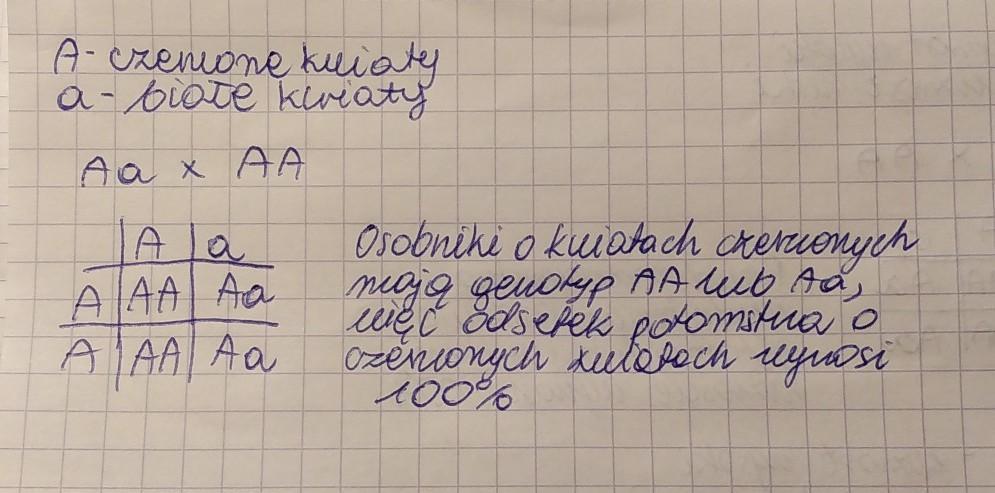 A - czerwone kwiaty
a - białe kwiaty
Aa x AA
A a
A AA Aa
A AA Aa
Osobniki o kwiatach czerwonych
mają genotyp AA lub Aa,
więc odsetek potomstwa o
czerwonych kwiatach wynosi
100%